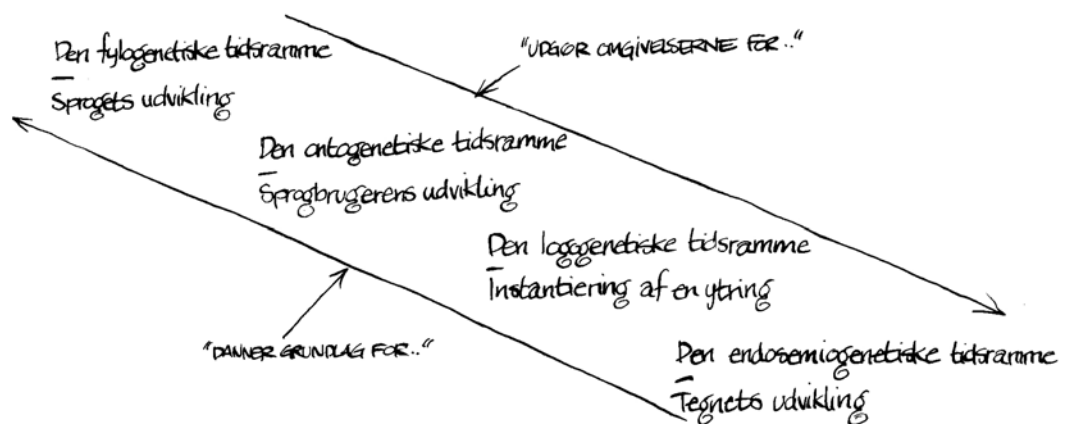 Den fylogenetiske tidsramme
"UDGØR OMGIVELSERNE FOR.."
Sprogets udvikling
Den ontogenetiske tidsramme
Sprogbrugerens udvikling
Den logogenetiske tidsramme
Instantiering af en ytring
"DANNER GRUNDLAG FOR.."
Den endosemiogenetiske tidsramme
Tegnets udvikling